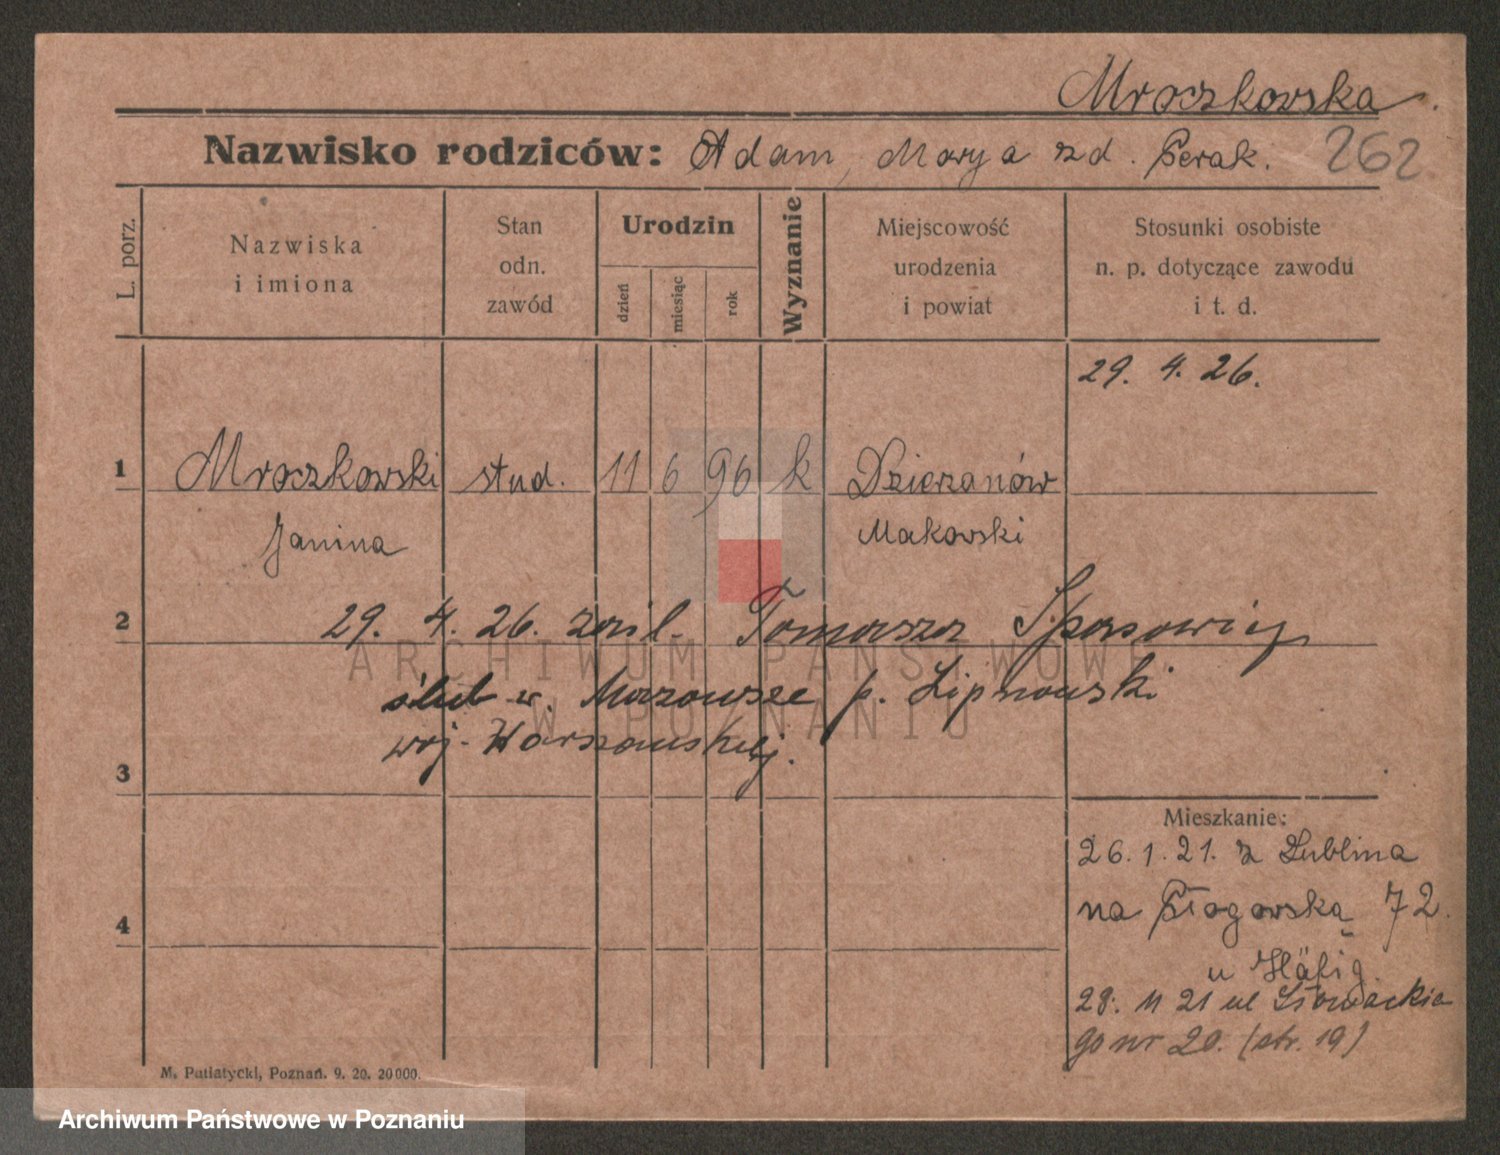 Mroczkowska
Nazwisko rodziców: Adam, Marya zd. Serak.
262
L. porz.
Nazwiska
i imiona
Stan
odn.
zawód
Urodzin
dzień
miesiąc
rok
Wyznanie
Miejscowość
urodzenia
i powiat
Stosunki osobiste
n. p. dotyczące zawodu
i t. d.
29. 4. 26.
1 Mroczkowski stud. 11 6 96 k Dzierzanów
Janina Makowski
2 29. 4. 26. zaśl. Tomasza
ARCHIWUM PAŃSTWOWE
ślub w. Mazowsze p. Lipnowski
W POZNANIU
woj. Warszawskiej.
3
Mieszkanie:
26. 1. 21. z Lublina
na Głogowską 72.
4
u Häfig.
28. 11 21 ul Słowackie
go nr 20. (str. 19)
M. Putiatycki, Poznań. 9. 20. 20000.
Archiwum Państwowe w Poznaniu